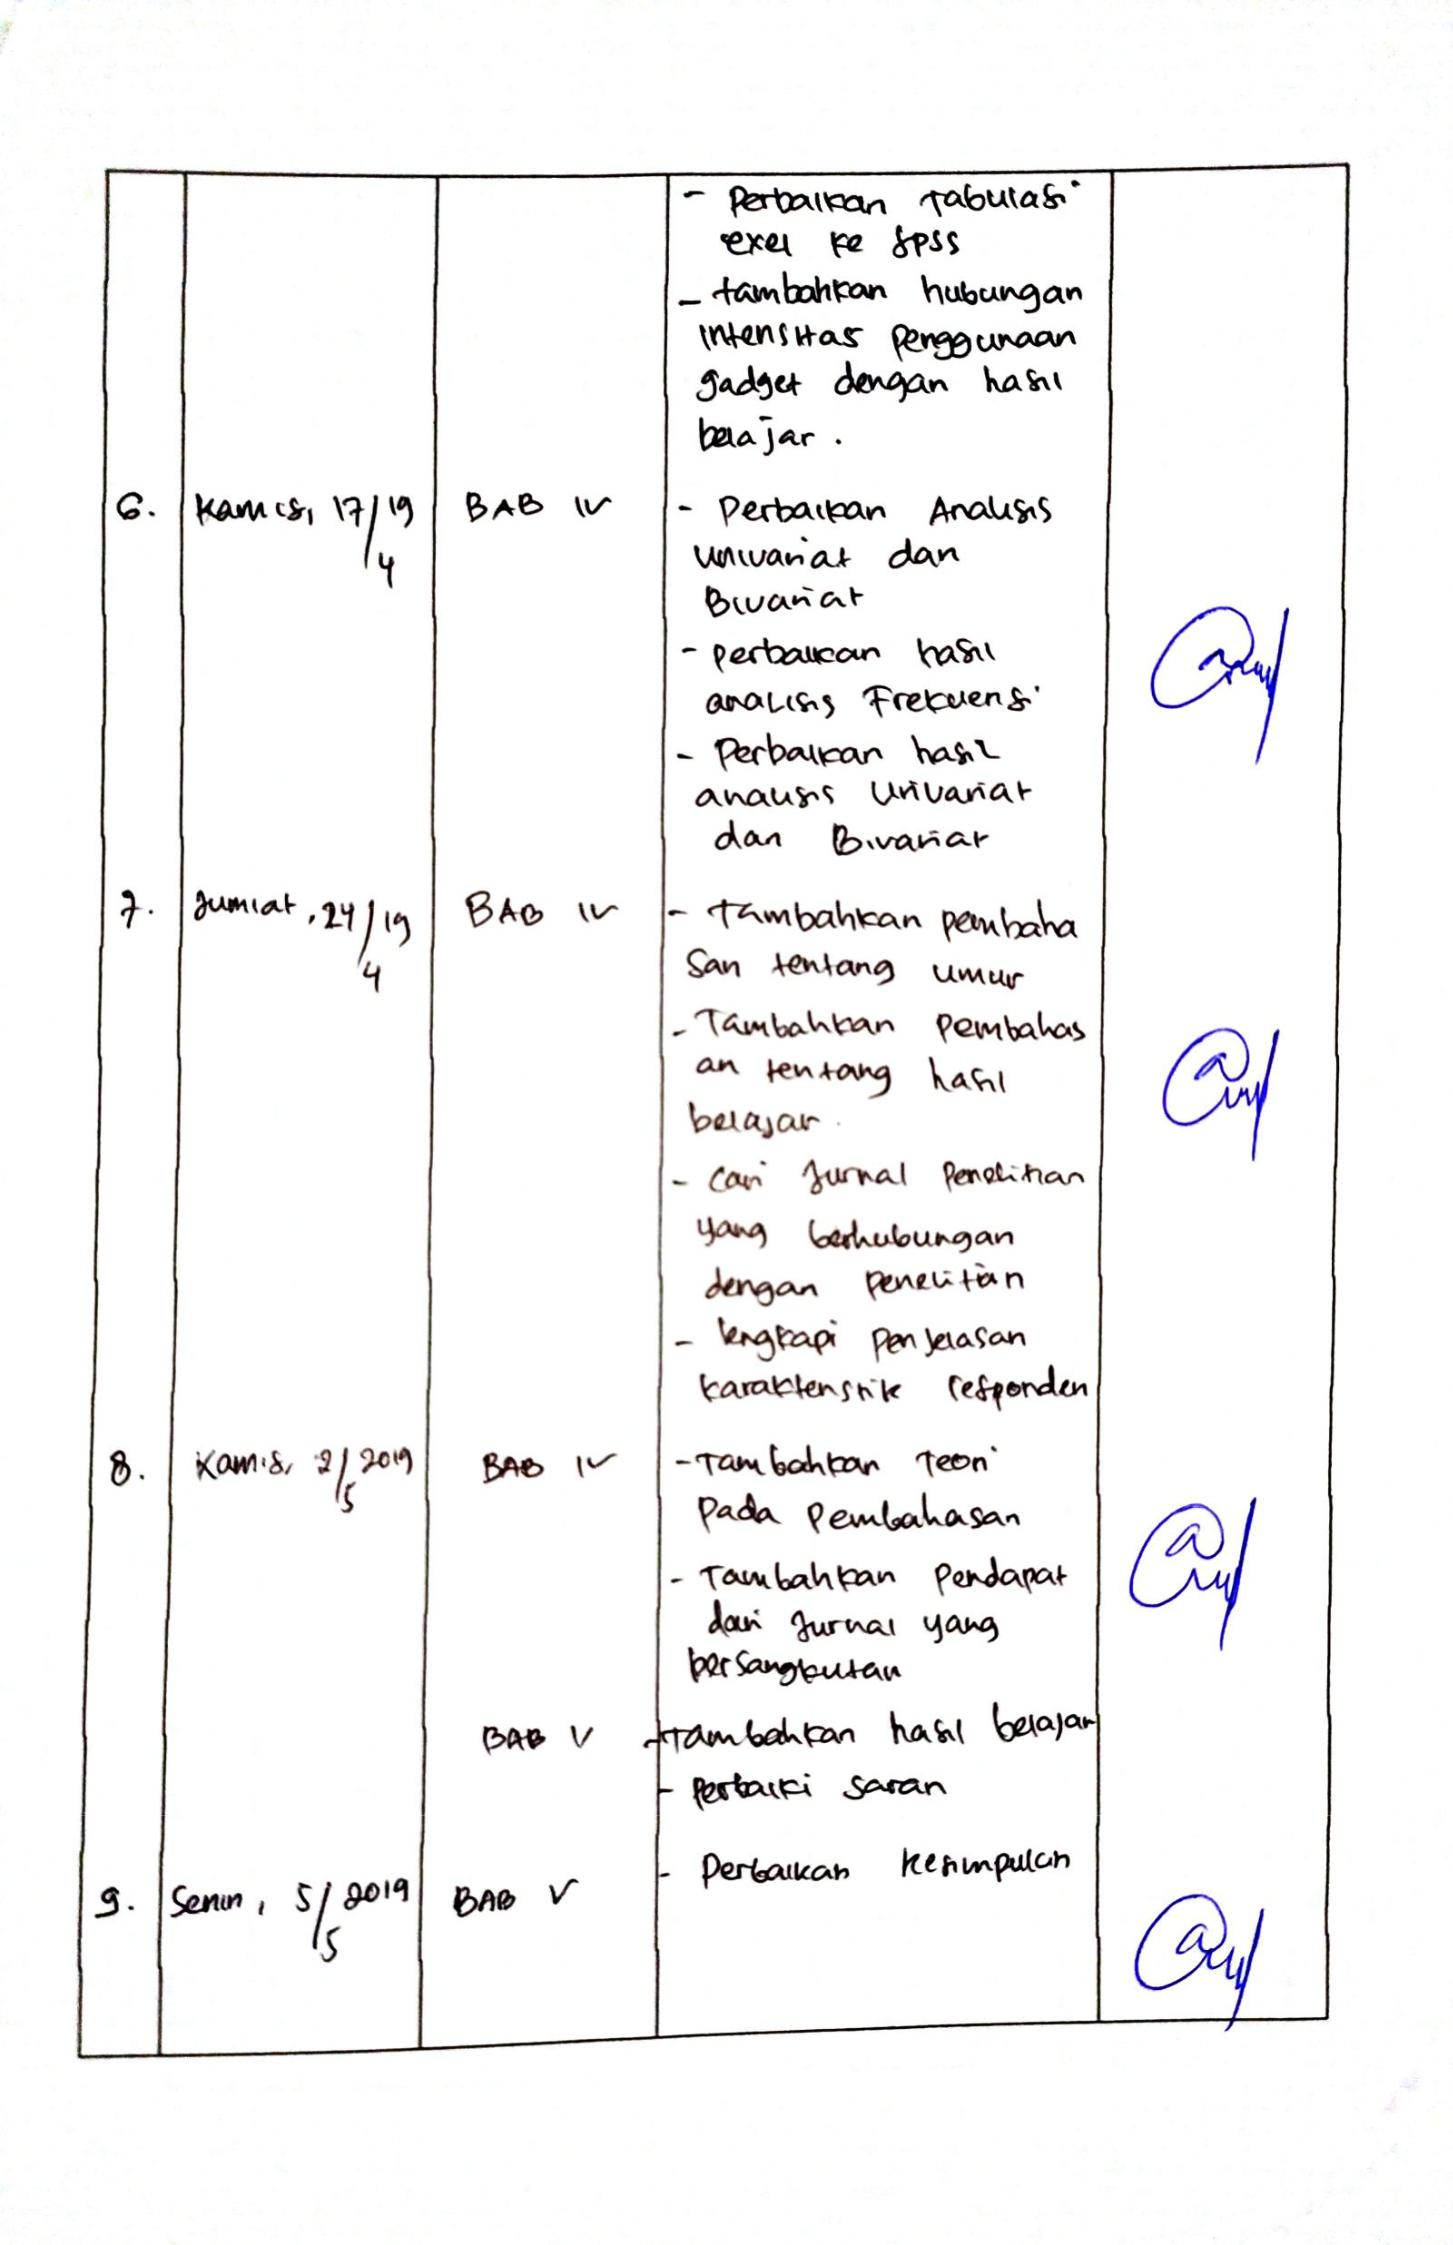 - Perbaikan Tabulasi
exel ke SPSS
- tambahkan hubungan
intensitas penggunaan
gadget dengan hasil
belajar.
6. Kamis, 17/4 19 BAB IV - Perbaikan Analisis
Univariat dan
Bivariat
- perbaikan hasil
analisis Frekuensi
- Perbaikan hasil
analisis Univariat
dan Bivariat
7. Jumiat, 24/4 19 BAB IV - Tambahkan pembaha
san tentang umur
- Tambahkan Pembahas
an tentang hasil
belajar.
- Cari Jurnal Penelitian
yang berhubungan
dengan penelitian
- lengkapi penjelasan
karakteristik responden
8. Kamis, 2/5 2019 BAB IV - Tambahkan Teori
Pada Pembahasan
- Tambahkan Pendapat
dari Jurnal yang
bersangkutan
BAB V - Tambahkan hasil belajar
- Perbaiki saran
- Perbaikan Kesimpulan
9. Senin, 5/5 2019 BAB V